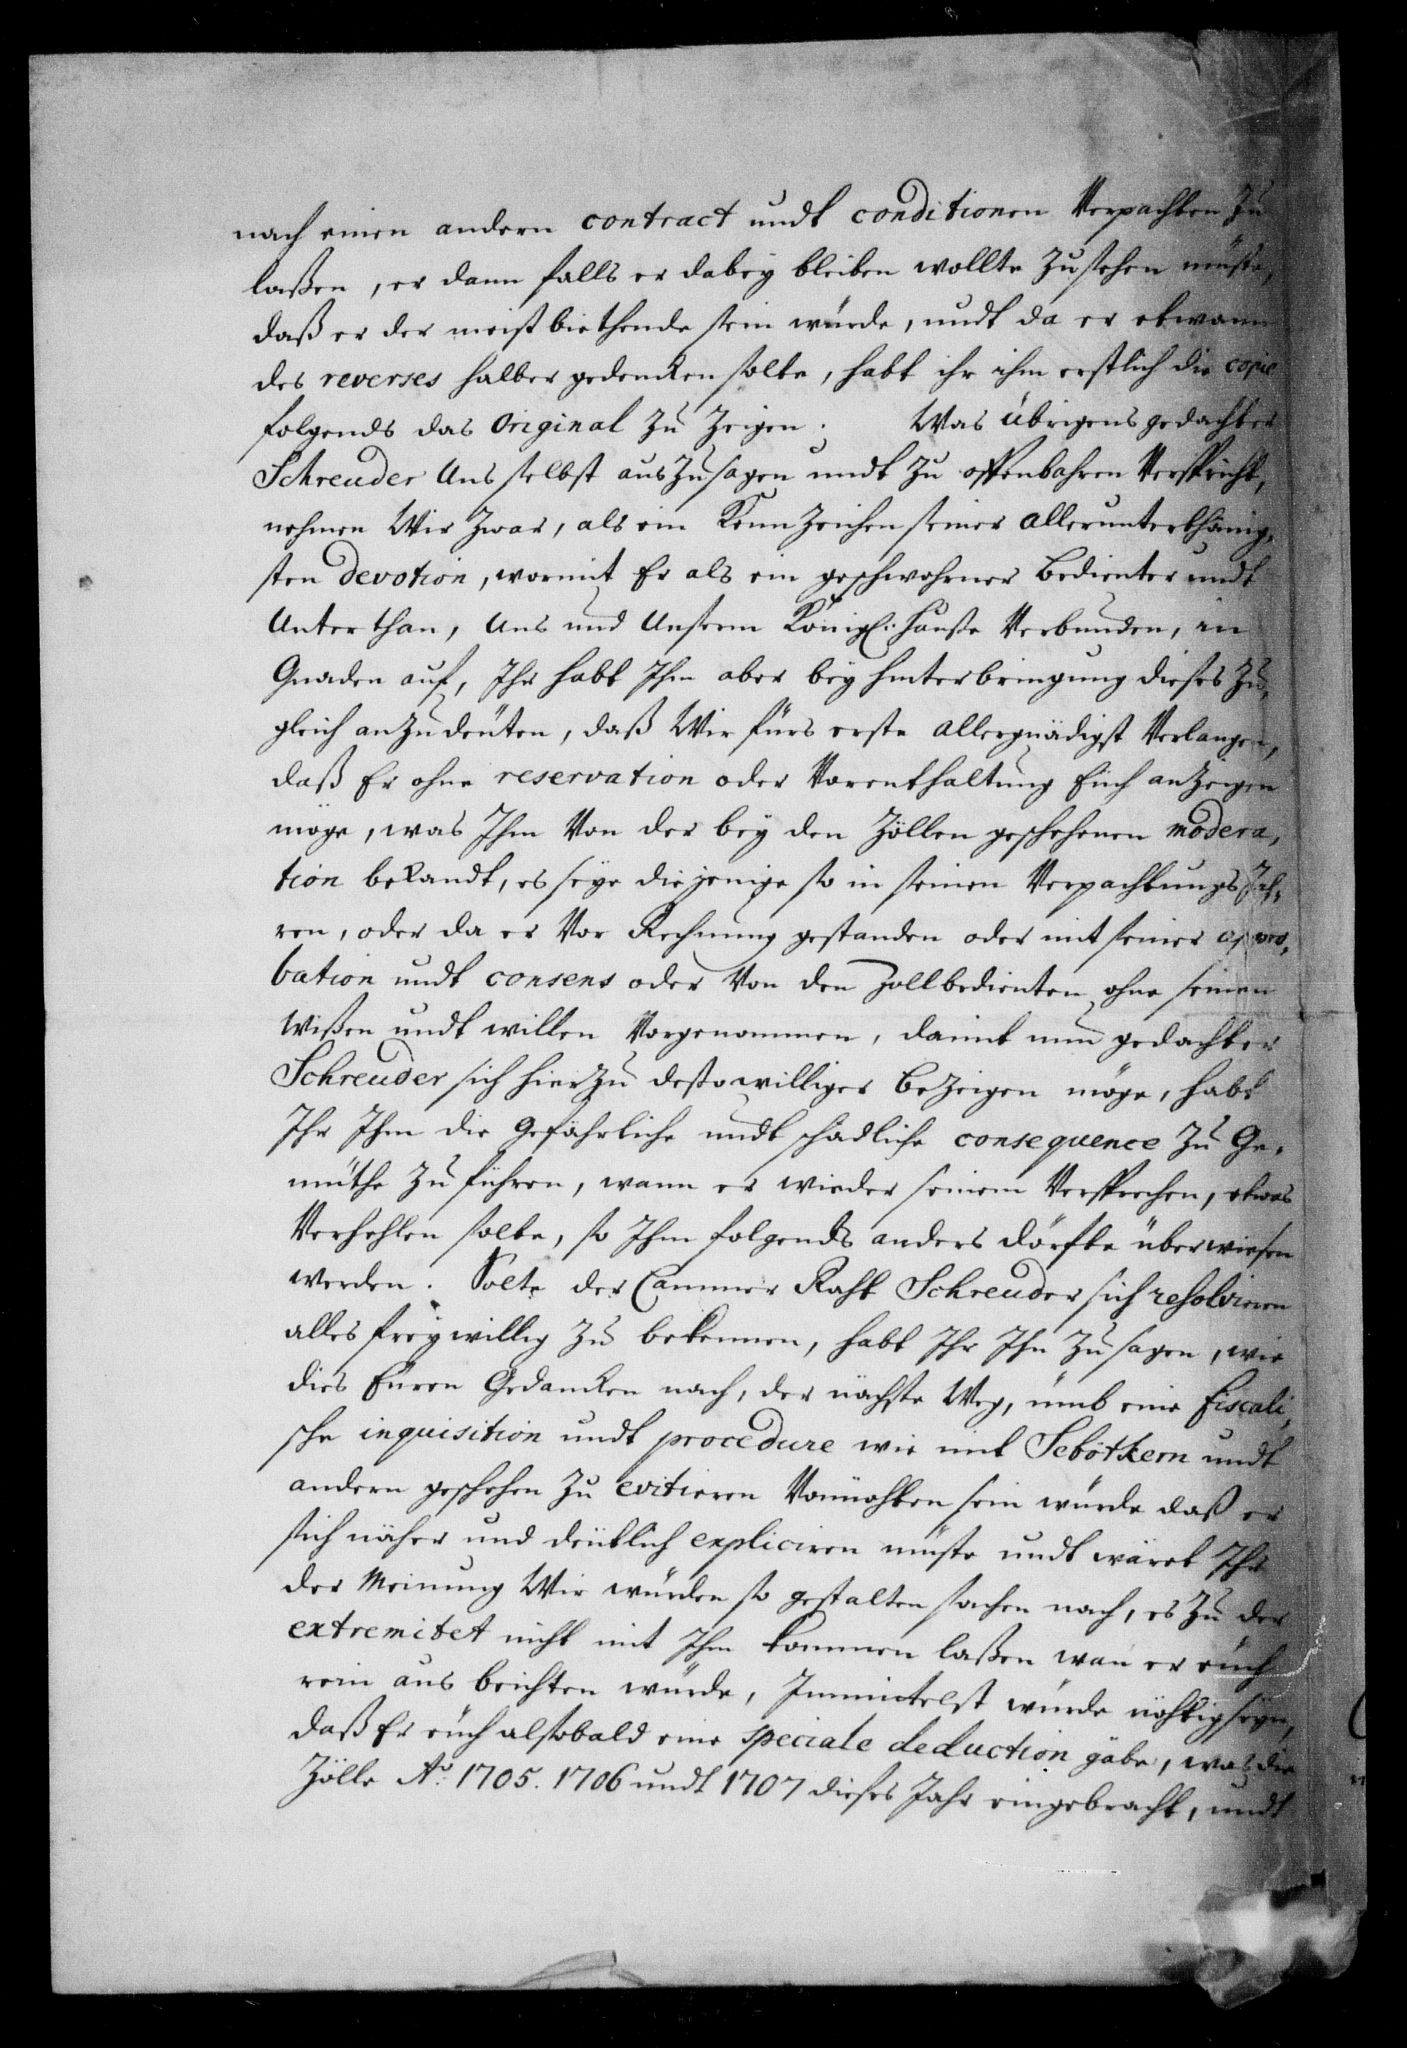 nach einen andern contract undt conditionen Verpachten zu
laßen, er dann falls er dabey bleiben wollte zustehen müste,
daß er der meistbiethende sein würde, undt da er etwann
des reverses halber gedencken solte, habt ihr ihm erstlich die copie
folgends das Original zu zeigen. Was übrigens gedachter
Schreuder Uns selbst auszusagen undt zu offenbahren Verspricht,
nehmen Wir zwar, als ein Kennzeichen seiner allerunterthänig,
sten devotion, wormit Er als ein geschwohrner Bedienter undt
Unterthan, Uns und Unserm Königl: Hauße Verbunden, in
Gnaden auf, Ihr habt Ihm aber bey hinterbringung dieses zu,
gleich anzudeuten, daß Wir fürs erste allergnädigst Verlangen,
daß Er ohne reservation oder Vorenthaltung Euch anzeigen
möge, was Ihm Von der bey den Zöllen geschehenen modera,
tion bekandt, es seye diejenige so in seinen Verpachtungs Jah,
ren, oder da er Vor Rechnung gestanden oder mit seiner appro,
bation undt consens oder Von den Zollbedienten ohne seinen
Wißen undt willen Vorgenommen, damit nun gedachter
Schreuder sich hierzu destowilliger bezeigen möge, habt
Ihr Ihm die Gefährliche undt schädliche consequence zu Ge,
müthe zu führen, wann er wieder seinem Versprechen, etwas
Verhehlen solte, so Ihm folgends anders dörfte überwiesen
werden. Solte der Cammer Raht Schreuder sich resolvieren
alles freywillig zu bekennen, habt Ihr Ihn zu sagen, wie
dies Euren Gedancken nach, der nächste Weg, ümb eine fiscali,
sche inquisition undt procedure wie mit Sebötkern undt
andern geschehen zu evitieren Vonnöhten sein würde daß er
sich näher und deütlich expliciren müste undt wäret Ihr
der Meinung Wir würden so gestalten sachen nach, es zu der
extremitet nicht mit Ihm kommen laßen wan er euch
rein aus beichten würde, Immittelst würde nöhtig seyn,
daß Er euch alsobald eine speciale deduction gäbe, was die
Zölle Aº: 1705. 1706 undt 1707 dieses Jahr eingebracht, undt